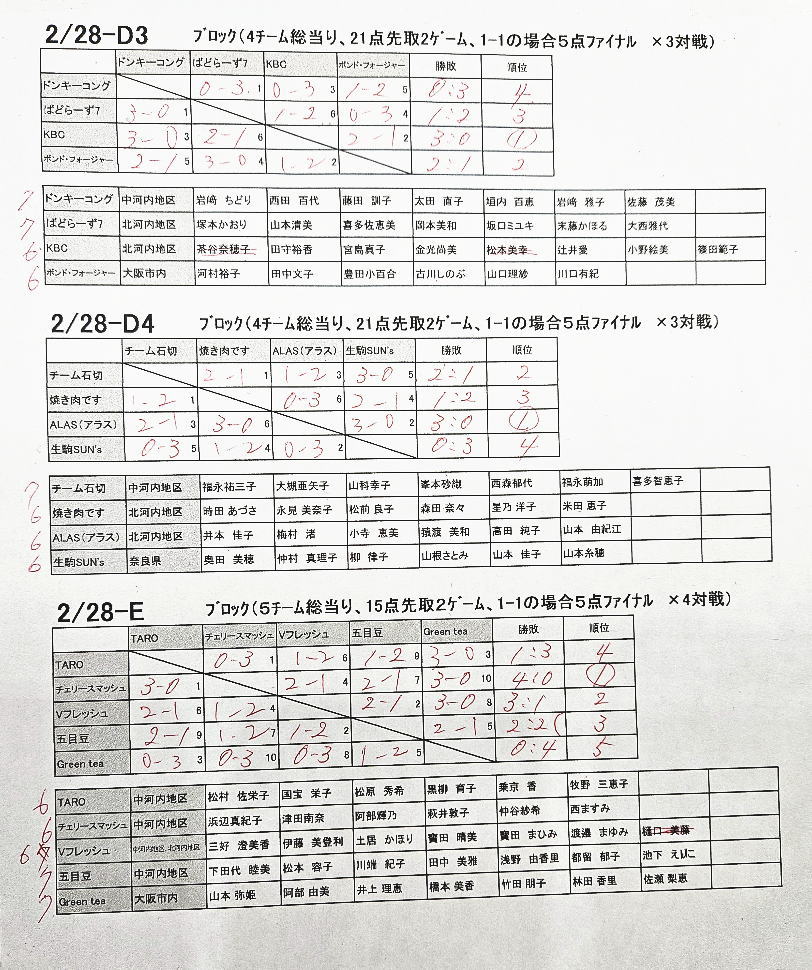 2/28-D3 ブロック(4チーム総当り、21点先取2ゲーム、1-1の場合5点ファイナル ×3対戦)
ドンキーコング ばどらーず7 KBC ボンド・フォージャー 勝敗 順位
ドンキーコング 0-3 1 0-3 3 1-2 5 0:3 4
ばどらーず7 3-0 1 1-2 6 0-3 4 1:2 3
KBC 3-0 3 2-1 6 2-1 2 3:0 1
ボンド・フォージャー 2-1 5 3-0 4 1-2 2 2:1 2
7 ドンキーコング 中河内地区 岩﨑 ちどり 西田 百代 藤田 訓子 太田 直子 垣内 百恵 岩﨑 雅子 佐藤 茂美
7 ばどらーず7 北河内地区 塚本かおり 山本清美 喜多佐恵美 岡本美和 坂口ミユキ 末藤かほる 大西雅代
6 KBC 北河内地区 茶谷奈穂子 田守裕香 宮島真子 金光尚美 松本美幸 辻井愛 小野絵美 篠田範子
6 ボンド・フォージャー 大阪市内 河村裕子 田中文子 豊田小百合 古川しのぶ 山口理紗 川口有紀
2/28-D4 ブロック(4チーム総当り、21点先取2ゲーム、1-1の場合5点ファイナル ×3対戦)
チーム石切 焼き肉です ALAS(アラス) 生駒SUN's 勝敗 順位
チーム石切 2-1 1 1-2 3 3-0 5 2:1 2
焼き肉です 1-2 1 0-3 6 2-1 4 1:2 3
ALAS(アラス) 2-1 3 3-0 6 3-0 2 3:0 1
生駒SUN's 0-3 5 1-2 4 0-3 2 0:3 4
7 チーム石切 中河内地区 福永祐三子 大槻亜矢子 山科幸子 峯本砂織 西森郁代 福永萌加 喜多智恵子
6 焼き肉です 北河内地区 時田 あづさ 永見 美奈子 松前 良子 森田 奈々 星乃 洋子 米田 恵子
6 ALAS(アラス) 北河内地区 井本 佳子 梅村 渚 小寺 恵美 猿渡 美和 高田 純子 山本 由紀江
6 生駒SUN's 奈良県 奥田 美穂 仲村 真理子 柳 律子 山根さとみ 山本 佳子 山本糸穂
2/28-E ブロック(5チーム総当り、15点先取2ゲーム、1-1の場合5点ファイナル ×4対戦)
TARO チェリースマッシュ Vフレッシュ 五目豆 Green tea 勝敗 順位
TARO 0-3 1 1-2 6 1-2 9 3-0 3 1:3 4
チェリースマッシュ 3-0 1 2-1 4 2-1 7 3-0 10 4:0 1
Vフレッシュ 2-1 6 1-2 4 2-1 2 3-0 8 3:1 2
五目豆 2-1 9 1-2 7 1-2 2 2-1 5 2:2 3
Green tea 0-3 3 0-3 10 0-3 8 1-2 5 0:4 5
6 TARO 中河内地区 松村 佐栄子 国宝 栄子 松原 秀希 黒柳 育子 乗京 香 牧野 三恵子
6 チェリースマッシュ 中河内地区 浜辺真紀子 津田南奈 阿部輝乃 萩井敦子 仲谷紗希 西ますみ
6 Vフレッシュ 中河内地区、北河内地区 三好 澄美香 伊藤 美登利 土居 かほり 寳田 晴美 寳田 まひみ 渡邉 まゆみ 樋口 美藤
7 五目豆 中河内地区 下田代 睦美 松本 容子 川端 紀子 田中 美雅 浅野 由香里 都留 郁子 池下 えりこ
7 Green tea 大阪市内 山本 弥姫 阿部 由美 井上 理恵 橋本 美香 竹田 朋子 林田 香里 佐瀬 梨恵